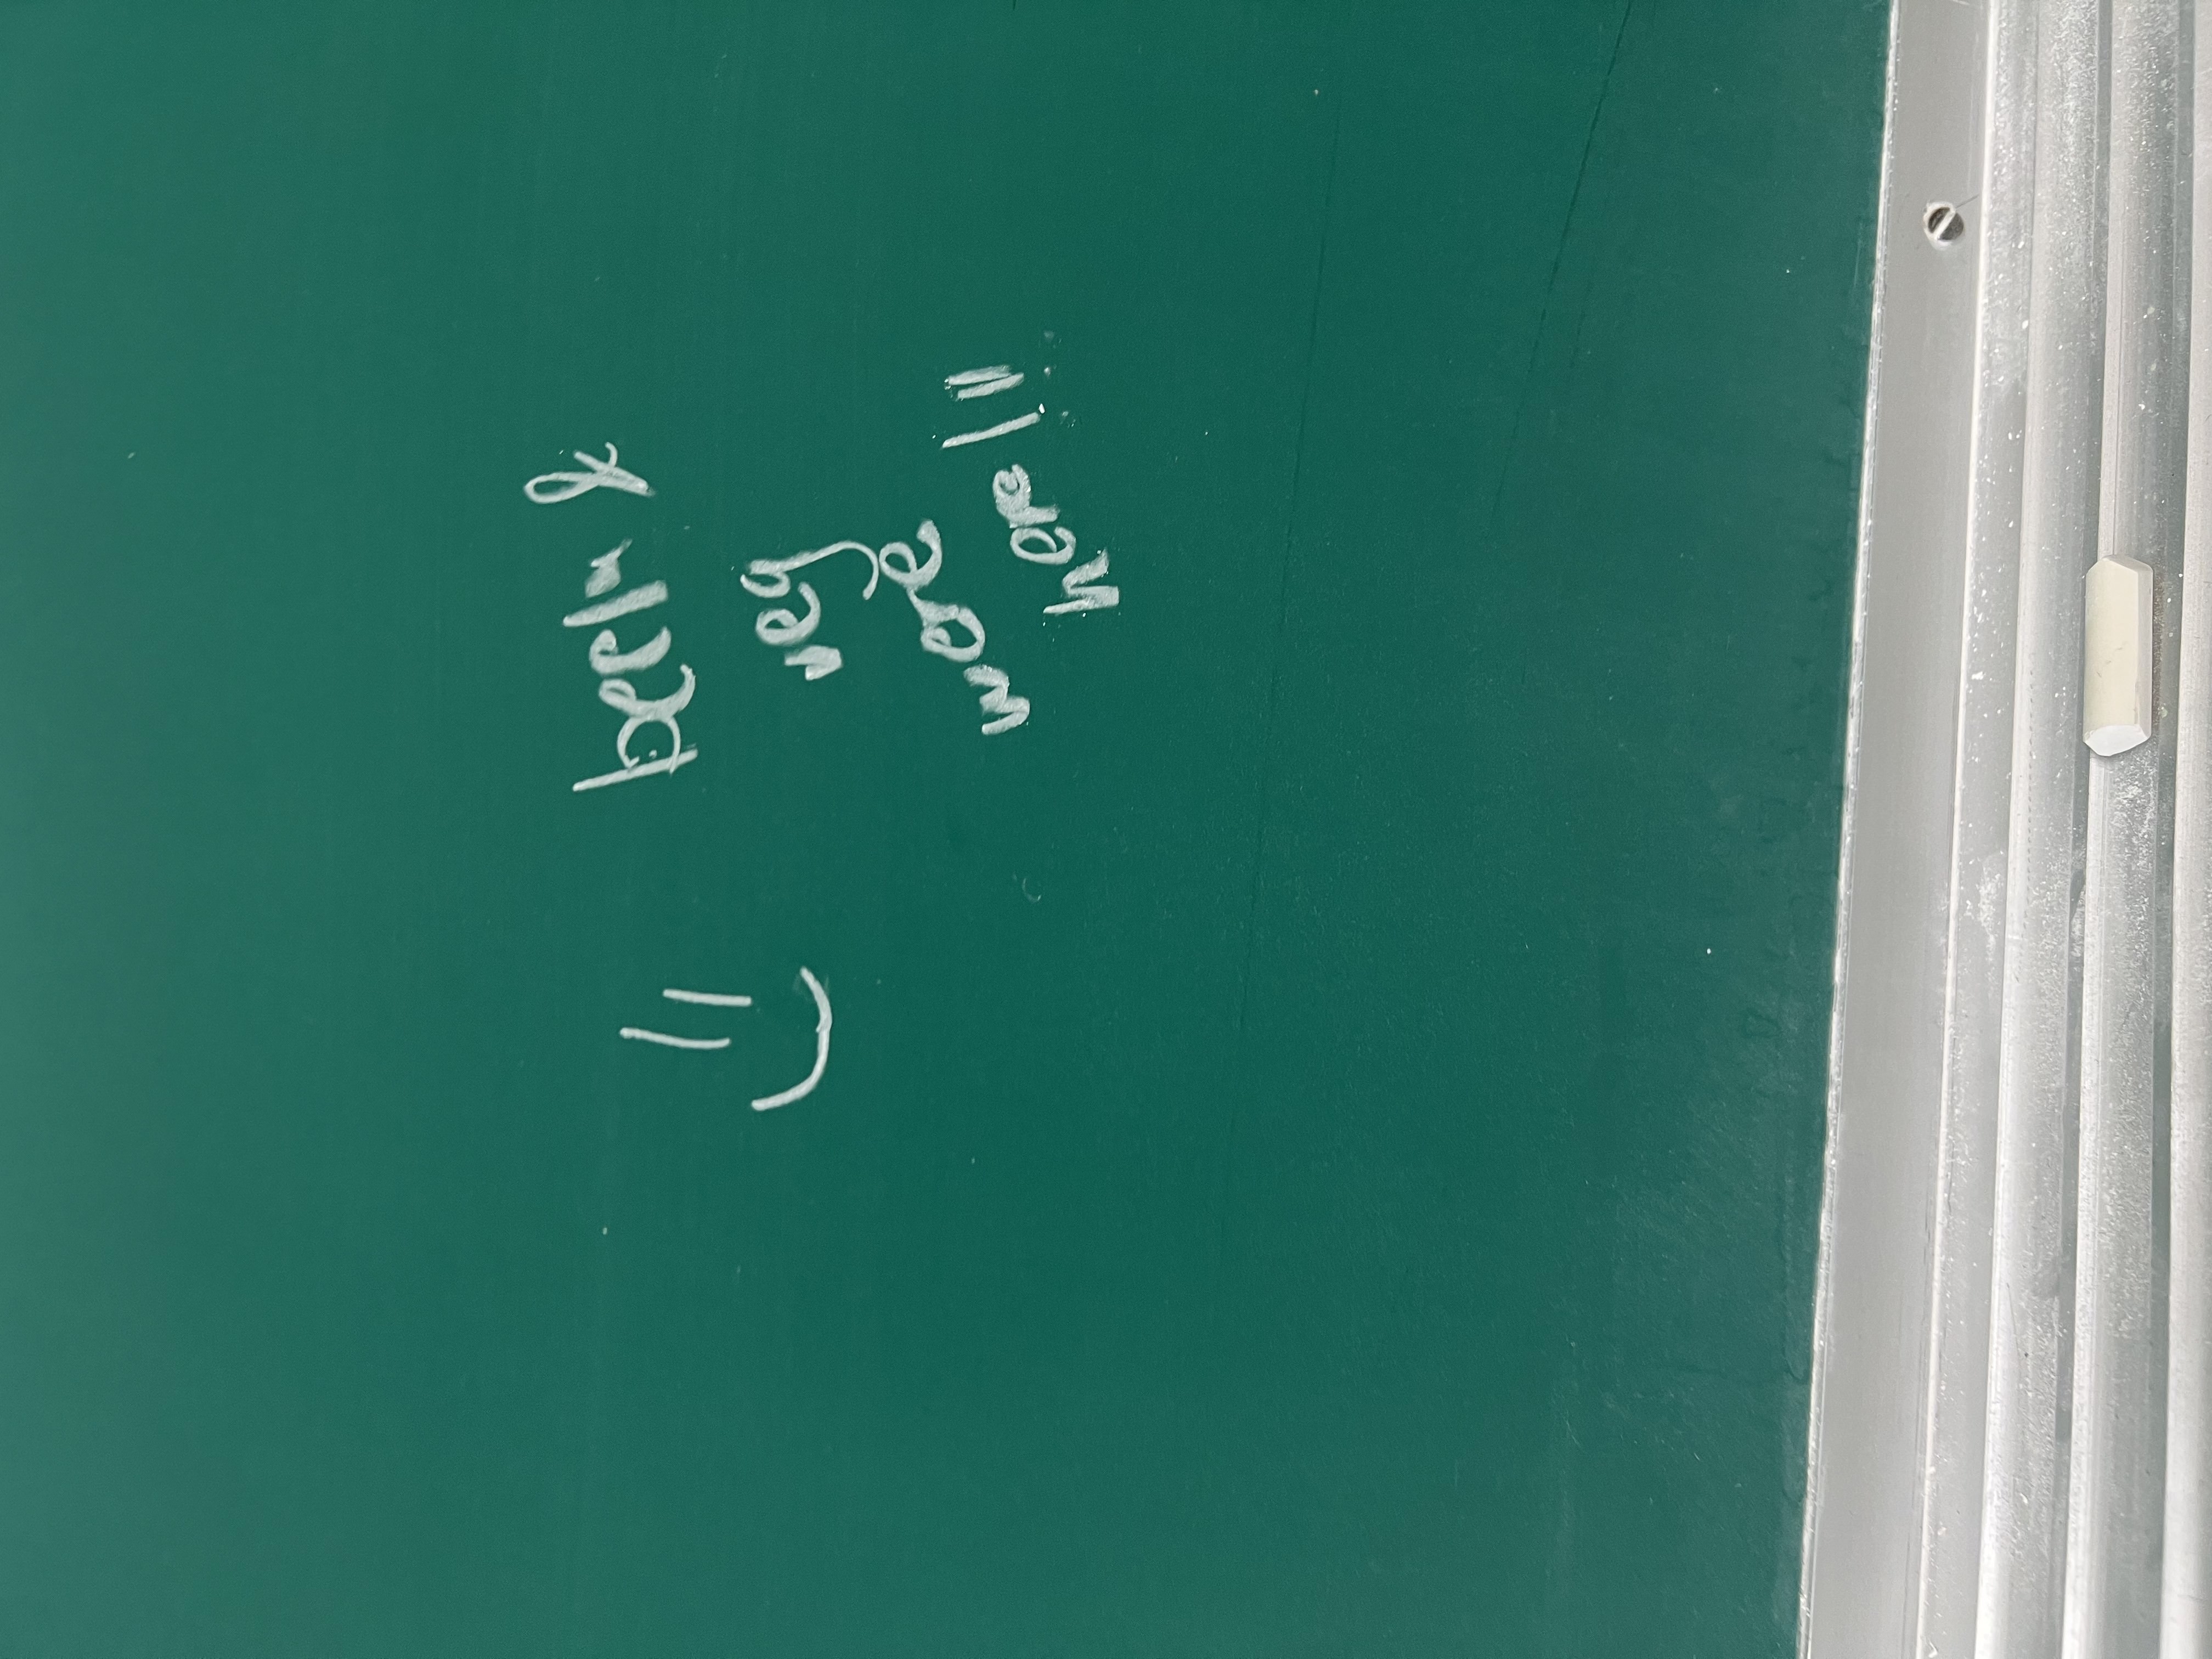 beela &
veg
were
here!!!